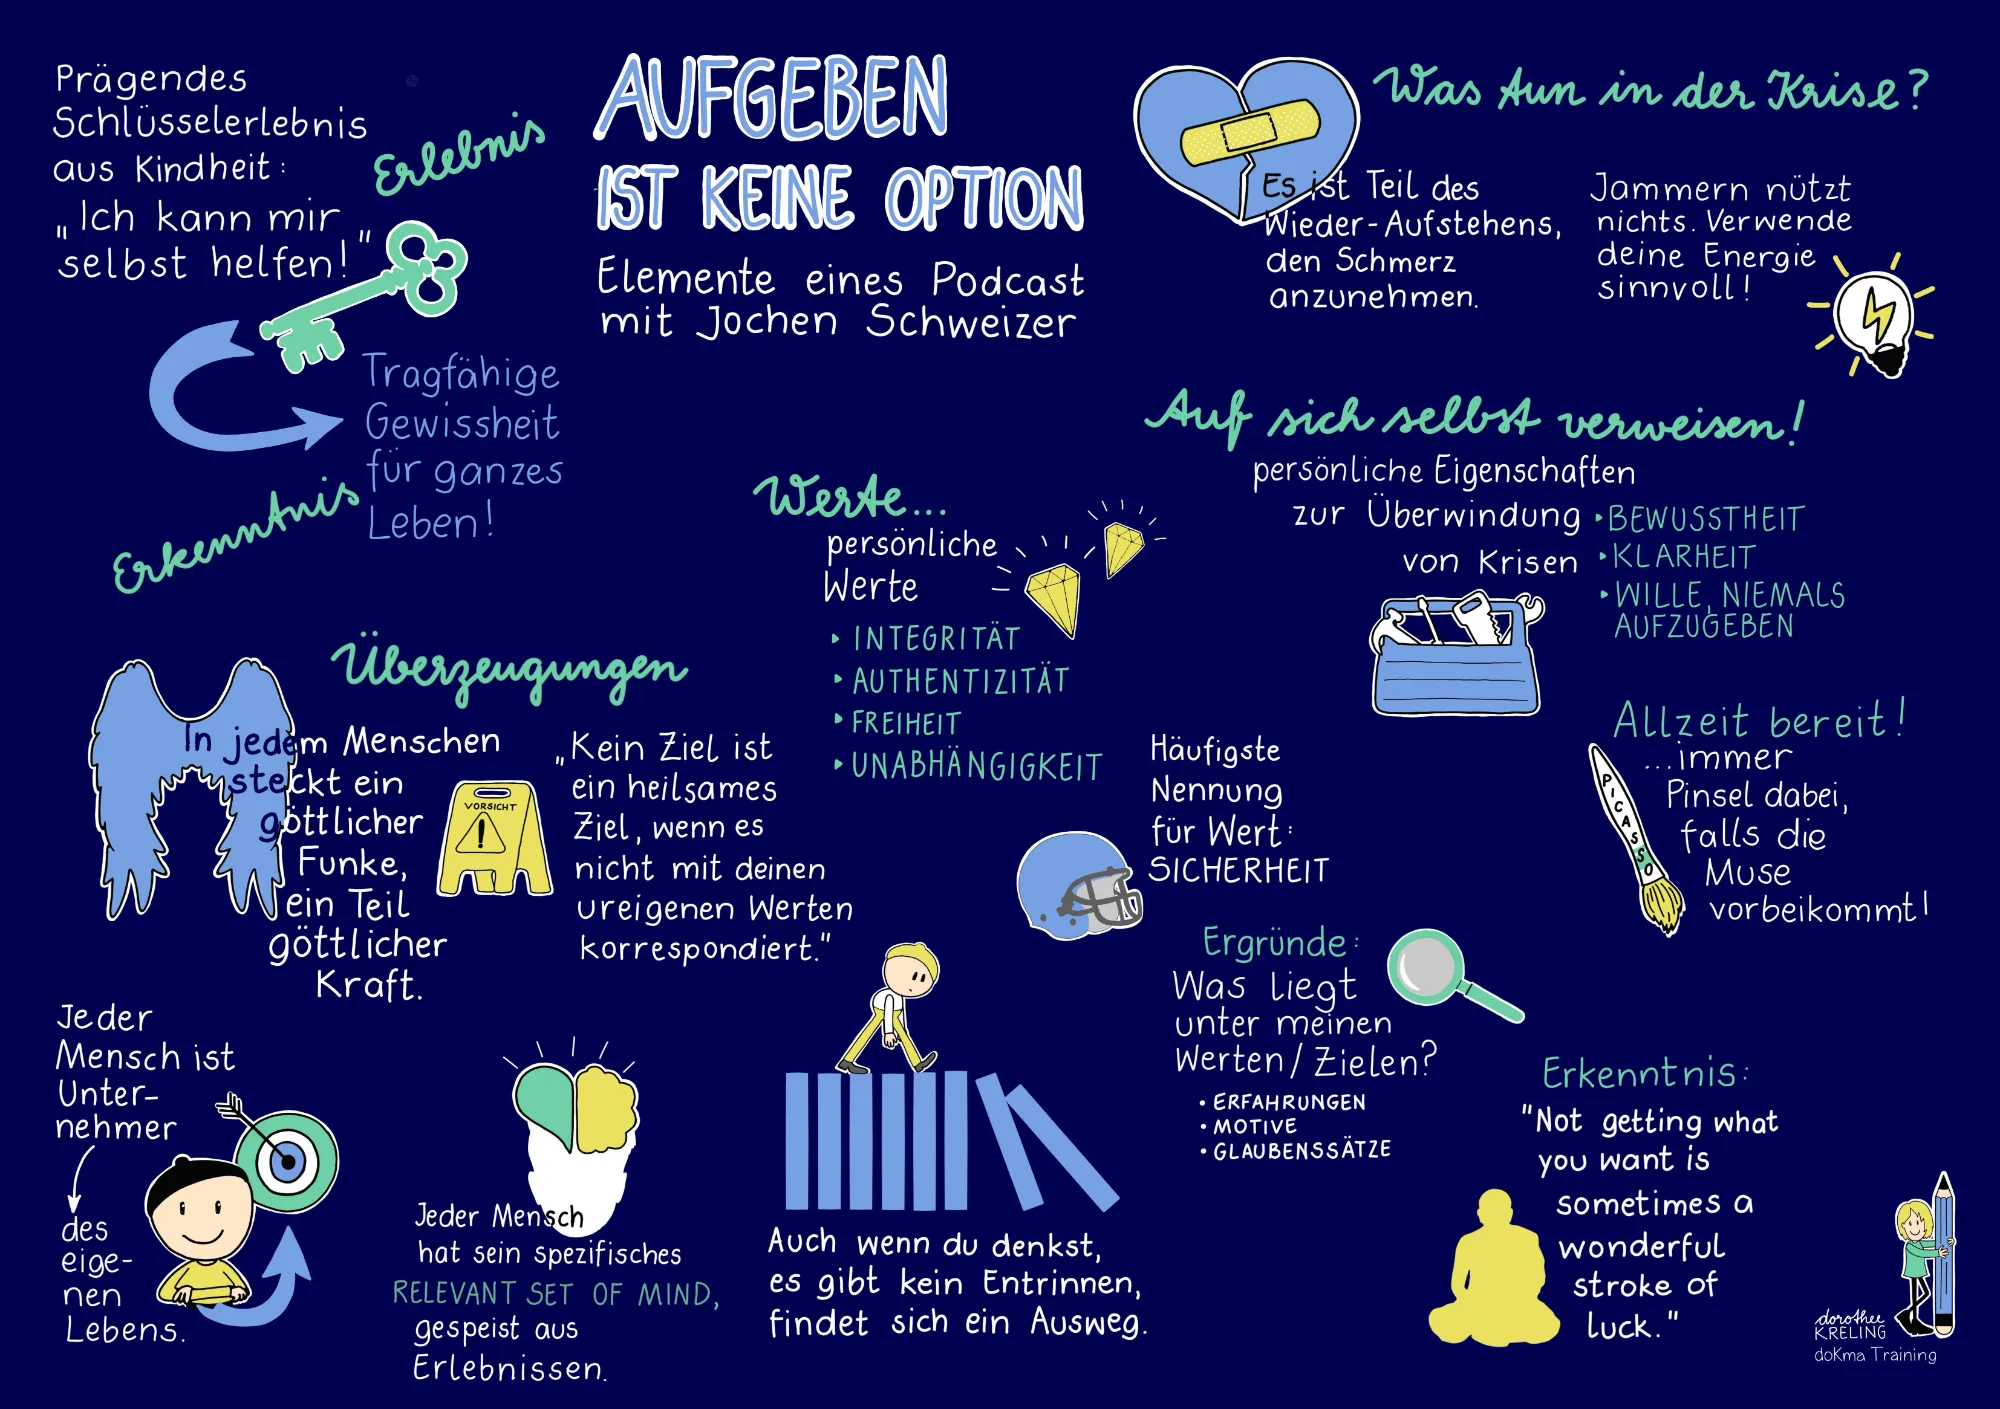 AUFGEBEN
IST KEINE OPTION
Elemente eines Podcast
mit Jochen Schweizer
Prägendes
Schlüsselerlebnis
aus Kindheit:
„Ich kann mir
selbst helfen!“
Erlebnis
Tragfähige
Gewissheit
für ganzes
Leben!
Erkenntnis
Was tun in der Krise?
Es ist Teil des
Wieder-Aufstehens,
den Schmerz
anzunehmen.
Jammern nützt
nichts. Verwende
deine Energie
sinnvoll!
Auf sich selbst verweisen!
persönliche Eigenschaften
zur Überwindung
von Krisen
• BEWUSSTHEIT
• KLARHEIT
• WILLE, NIEMALS
AUFZUGEBEN
Werte...
persönliche
Werte
‣ INTEGRITÄT
‣ AUTHENTIZITÄT
‣ FREIHEIT
‣ UNABHÄNGIGKEIT
Überzeugungen
In jedem Menschen
steckt ein
göttlicher
Funke,
ein Teil
göttlicher
Kraft.
VORSICHT
!
„Kein Ziel ist
ein heilsames
Ziel, wenn es
nicht mit deinen
ureigenen Werten
korrespondiert."
Häufigste
Nennung
für Wert:
SICHERHEIT
Allzeit bereit!
...immer
Pinsel dabei,
falls die
Muse
vorbeikommt!
PICASSO
Ergründe:
Was liegt
unter meinen
Werten/Zielen?
• ERFAHRUNGEN
• MOTIVE
• GLAUBENSSÄTZE
Jeder
Mensch ist
Unter-
nehmer
des
eige-
nen
Lebens.
Jeder Mensch
hat sein spezifisches
RELEVANT SET OF MIND,
gespeist aus
Erlebnissen.
Auch wenn du denkst,
es gibt kein Entrinnen,
findet sich ein Ausweg.
Erkenntnis:
"Not getting what
you want is
sometimes a
wonderful
stroke of
luck."
dorothee
KRELING
doKma Training